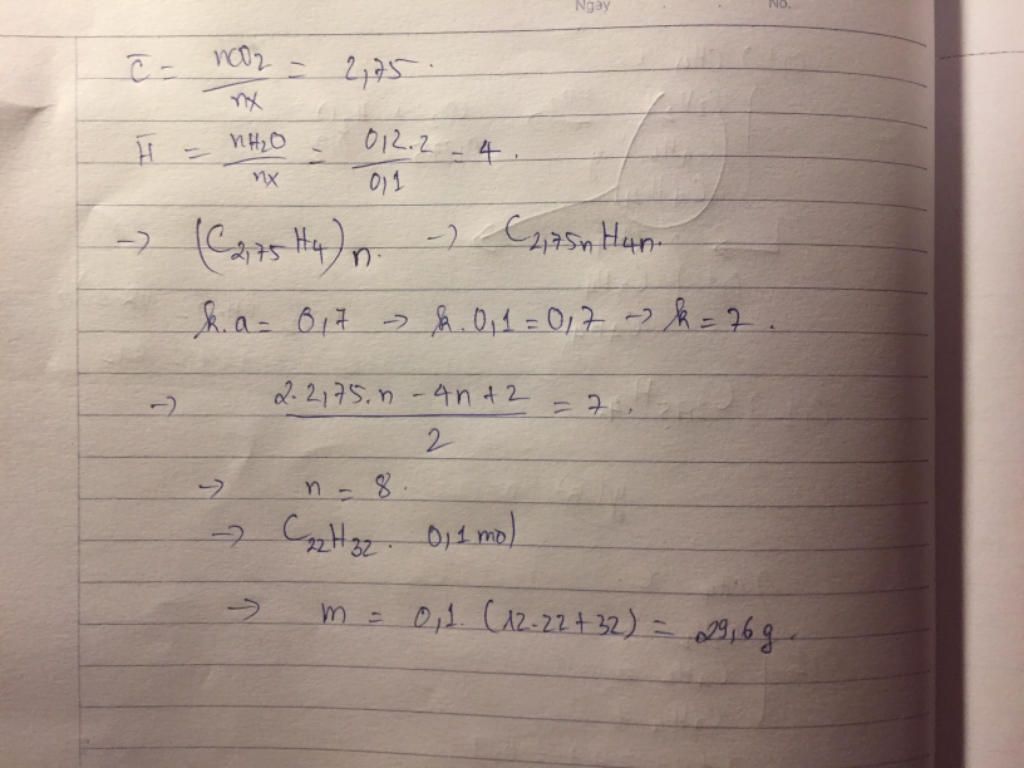 Ngày No.
C̄ = nCO₂/nX = 2,75.
H̄ = nH₂O/nX = 0,2.2/0,1 = 4.
→ (C₂,₇₅H₄)n. → C₂,₇₅ₙH₄ₙ.
k.a = 0,7 → k.0,1 = 0,7 → k = 7.
→ (2.2,75.n - 4n + 2)/2 = 7.
→ n = 8.
→ C₂₂H₃₂. 0,1 mol
→ m = 0,1. (12.22 + 32) = 29,6g.